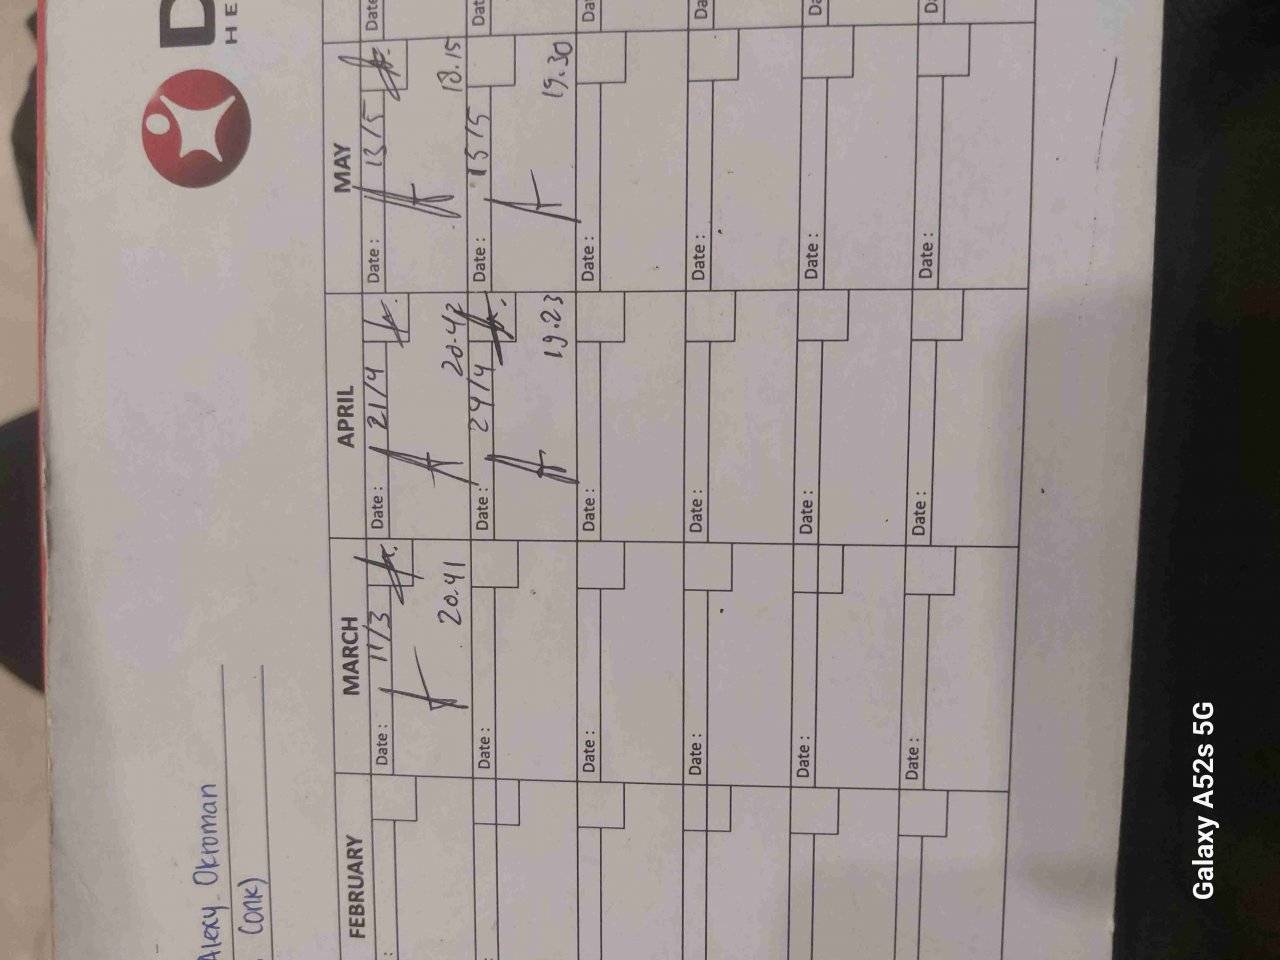 D
HE
Alexy Okroman
CONK)
FEBRUARY MARCH APRIL MAY
Date : 11/3 Date : 21/4 Date : 13/5 Date
20.41 20.42 18.15
Date : Date : 24/4 Date : 15/5 Dat
19.23 19.30
Date : Date : Date : Da
Date : Date : Date : Da
Date : Date : Date : Da
Date : Date : Date : D
Galaxy A52s 5G